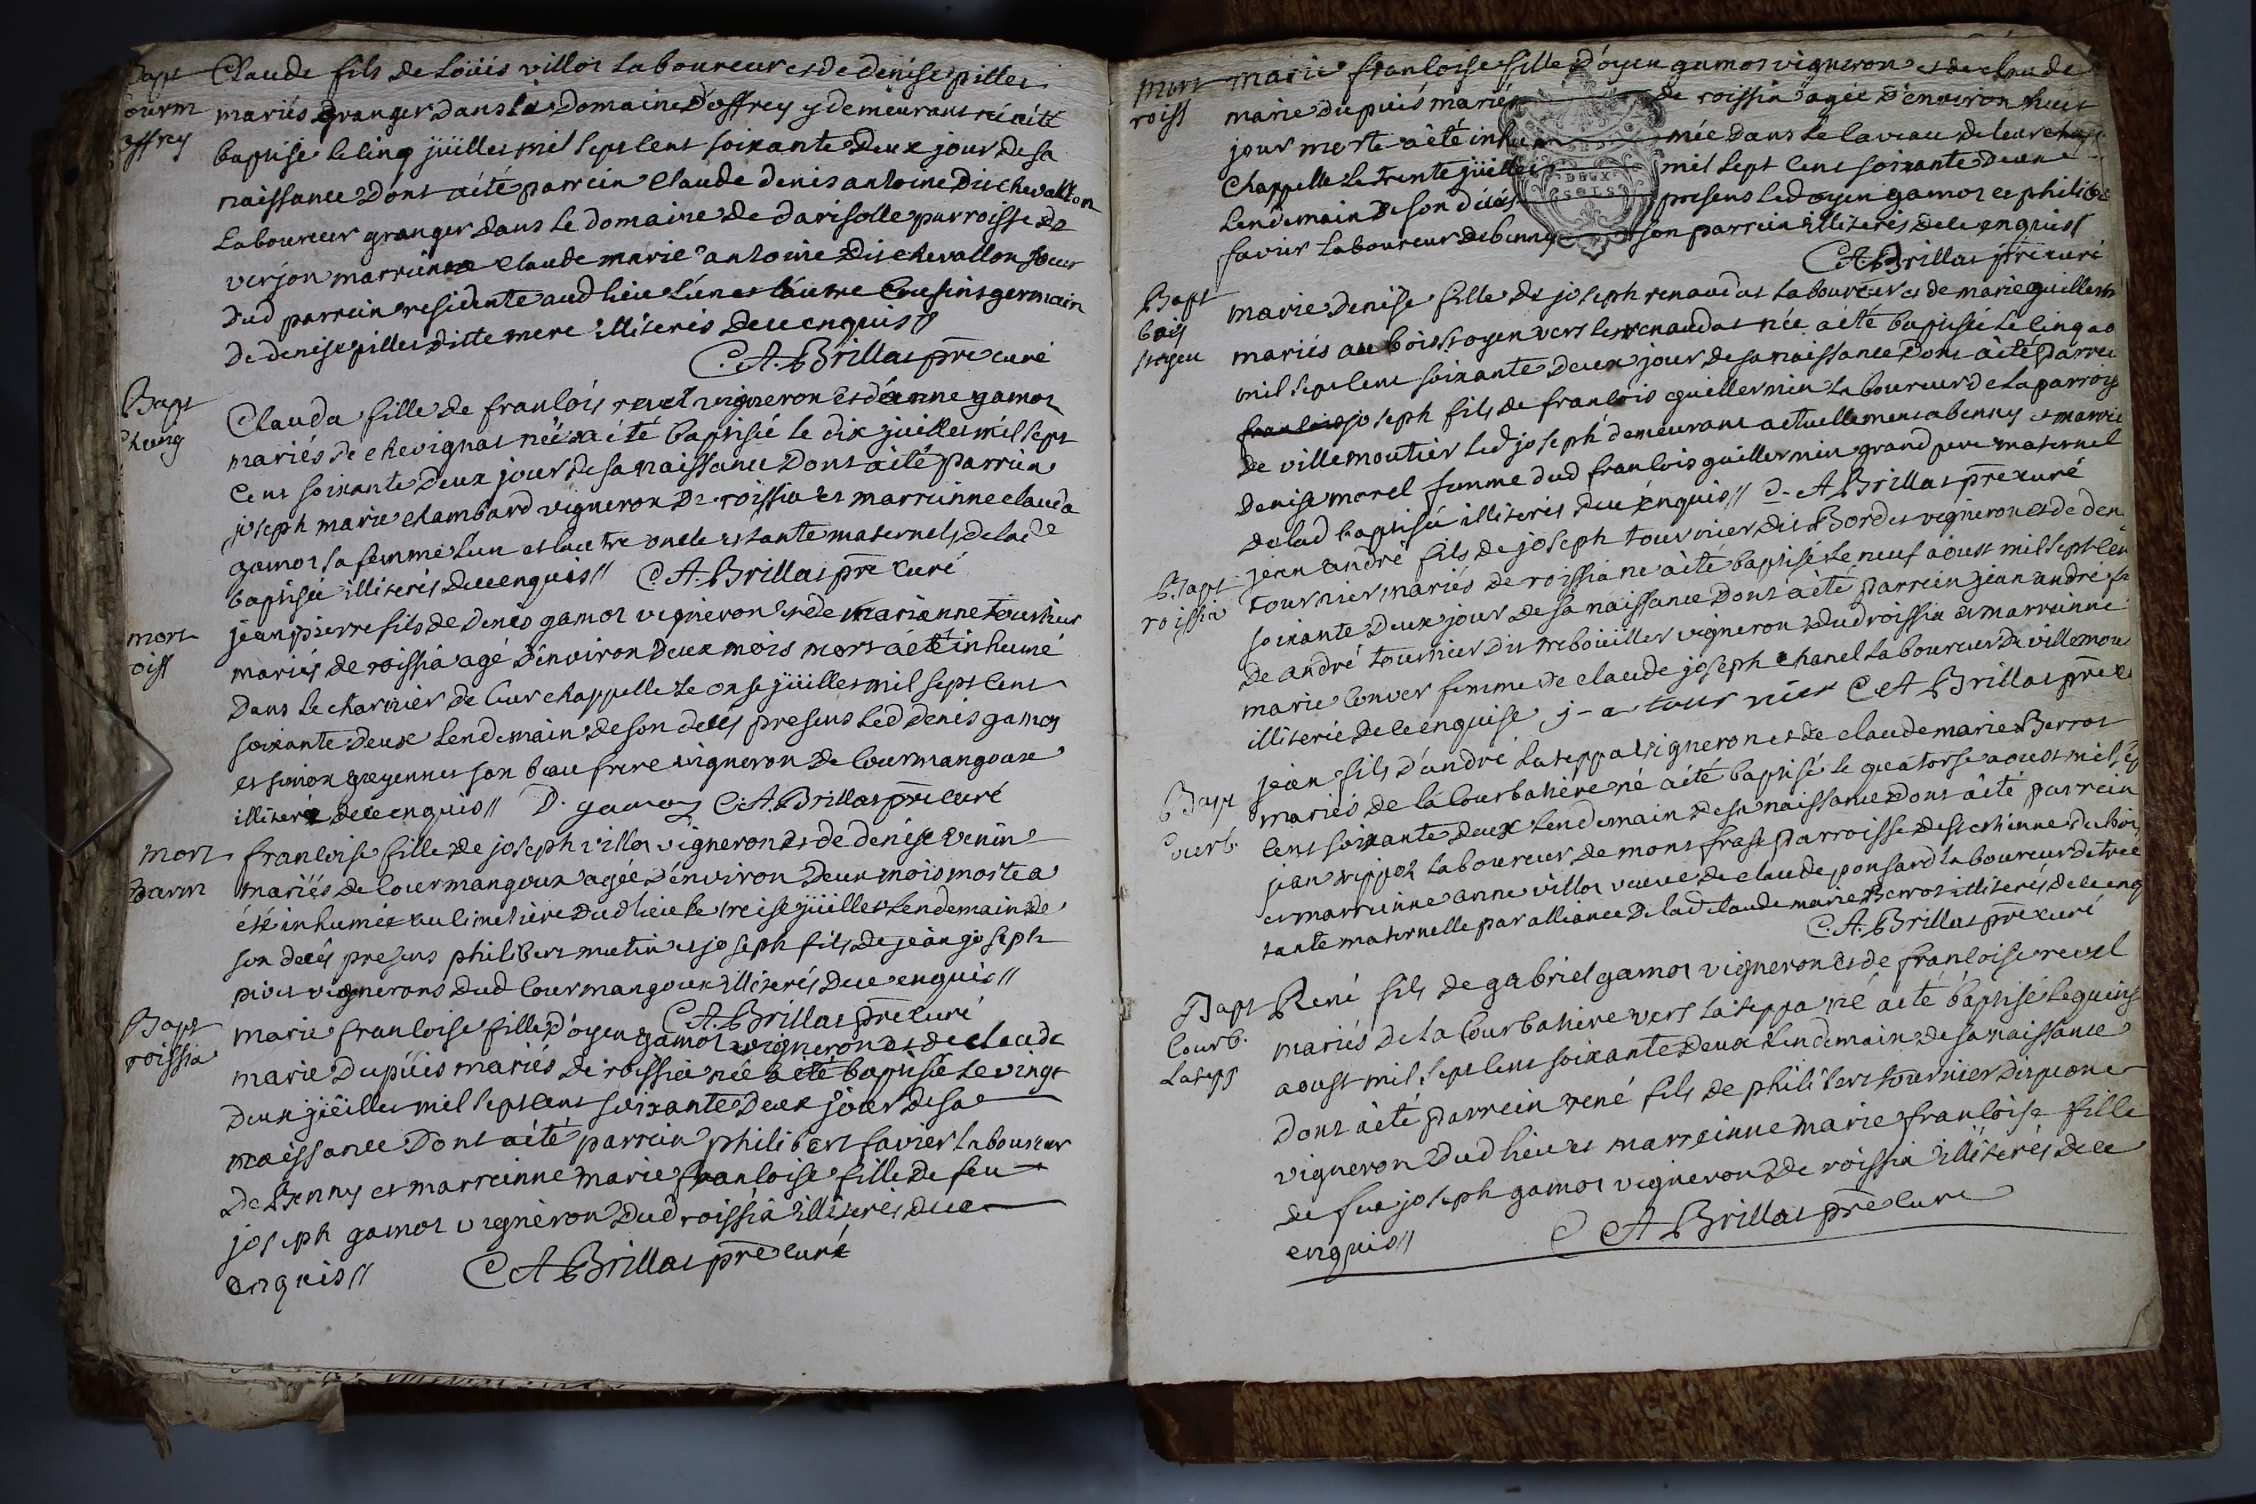 Bapt
Courm
offrey
Claude fils de Loüis villot laboureur et de denise pillet
mariés granger dans le domaine d'offrey y demeurant né a été
baptisé le cinq jüillet mil sept cent soixante deux jour de sa
naissance dont a été parrein claude denis antoine dit chevallon
laboureur granger dans le domaine de darisolle parroisse de
verjon marreinne claude marie antoine dit chevallon soeur
dud parrein residente aud lieu l'un et l'autre cousins germain
de denise pillet ditte mere illiterés de ce enquis //
C. A. Brillat prê curé
Bapt
Chevig
Clauda fille de francois revel vigneron et d'anne gamot
mariés de chevignat née a été baptisée le dix jüillet mil sept
cent soixante deux jour de sa naissance dont a été parrein
joseph marie chambard vigneron de roissia et marreinne clauda
gamot sa femme l'un et l'autre oncle et tante maternels de lad
baptisée illiterés de ce enquis // C. A. Brillat prê curé
mort
roiss
jean pierre fils de denis gamot vigneron et de marianne tournier
mariés de roissia agé d'environ deux mois mort a été inhumé
dans le charnier de leur chappelle le onse jüillet mil sept cent
soixante deux lendemain de son deces presens led denis gamot
et simon greyennet son beau frere vigneron de Courmangoux
illiteré de ce enquis // D. gamoz C. A. Brillat prê curé
mort
Courm
francoise fille de joseph villot vigneron et de denise venin
mariés de Courmangoux agée d'environ deux mois morte a
été inhumée au cimetiere dud lieu le treise jüillet lendemain de
son decés presens philibert mutin et joseph fils de jean joseph
vignerons dud Courmangoux illiterés de ce enquis //
C. A. Brillat prê curé
Bapt
roissia
marie francoise fille d'oyen gamot vigneron et de claude
marie Dupüis mariés de roissia née a été baptisée le vingt
deux jüillet mil sept cent soixante deux jour de sa
naissance dont a été parrein philibert favier laboureur
de Benny et marreinne marie francoise fille de feu
joseph gamot vigneron dud roissia illiterés de ce
enquis // C A Brillat prê curé
mort
roiss
marie francoise fille d'oyen gamot vigneron et de claude
marie dupuis mariés de roissia agée d'environ huit
jour morte a été inhumée dans le caveau de leur
chappelle le trente jüillet mil sept cent soixante deux
lendemain de son decés presens led oyen gamot et philibe
favier laboureur de benny son parrein illiterés de ce enquis //
DEUX
SOLS
C. A. Brillat prê curé
Bapt
bois
stoyen
marie denise fille de joseph renaudat laboureur et de marie guillerm
mariés au bois st oyen vers les renaudat née a été baptisée le cinq ao
mil sept cent soixante deux jour de sa naissance dont a été parrei
francois joseph fils de francois guillermin laboureur de la parroiss
de villemoutier led joseph demeurant actuellement a benny et marrei
denise morel femme dud francois guillermin grand pere maternel
de lad baptisée illiterés de ce enquis // C. A Brillat prê curé
Bapt
roissia
jean andré fils de joseph tournier dit Bordet vigneron et de den
tournier mariés de roissia né a été baptisé le neuf aoust mil sept cen
soixante deux jour de sa naissance dont a été parrein jean andré
de andré tournier dit treboüillet vigneron dud roissia et marreinne
marie Convert femme de claude joseph chanel laboureur de villemou
illiterée de ce enquise j-a tour nier C A Brillat prê c
Bapt
Courb.
jean fils d'andré lateppa vigneron et de claude marie Berrot
mariés de la Courbatiere né a été baptisé le quatorse aoust mil sep
cent soixante deux lendemain de sa naissance dont a été parrein
jean rippot laboureur de mont frase parroisse de st etienne du boi
et marreinne anne villot veuve de claude ponsard laboureur de tre
tante maternelle par alliance de lad claude marie Berrot illiterés de ce enq
C. A. Brillat prê curé
Bapt
Courb.
latepp
René fils de gabriel gamot vigneron et de francoise revel
mariés de la Courbatiere vers lateppa né a été baptisé le quinse
aoust mil sept cent soixante deux lendemain de sa naissance
dont a été parrein rené fils de philibert tournier dit
vigneron dud lieu et marreinne marie francoise fille
de feu joseph gamot vigneron de roissia illiterés de ce
enquis // C A Brillat prê curé